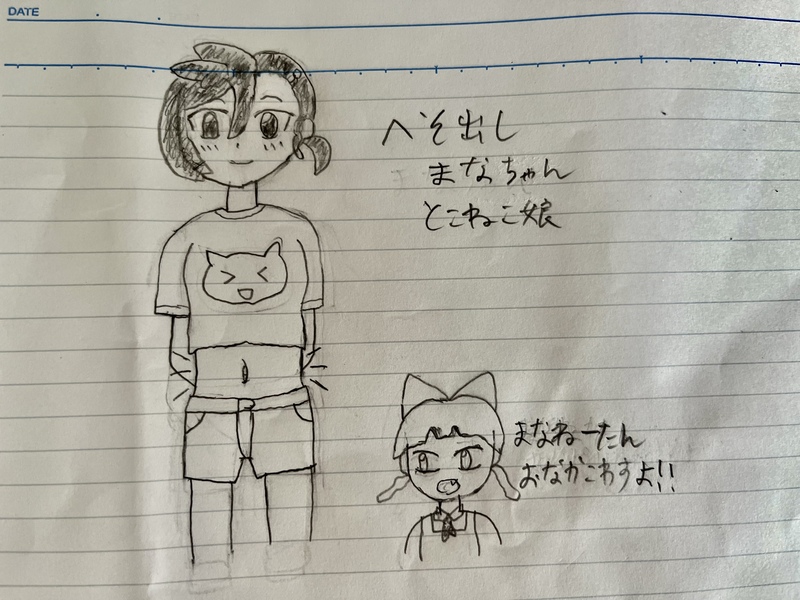 DATE
へそ出し
まなちゃん
とこねこ娘
まなねーたん
おなかこわすよ!!